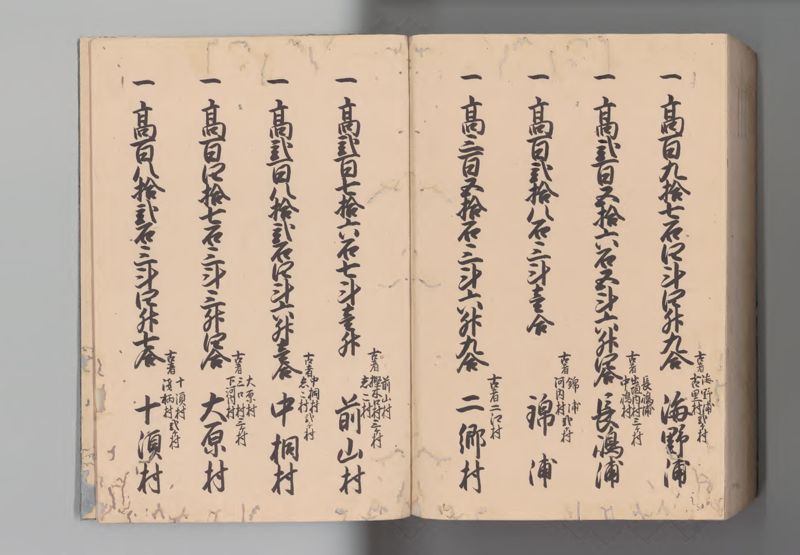 一 高百九拾七石四斗四升九合
古者 海野浦 古里村 弐ヶ村
海野浦
一 高弐百五拾六石五斗六升四合
古者 長嶋浦 出垣内村 中嶋村 三ヶ村
長嶋浦
一 高百弐拾八石三斗壱合
古者 錦浦 河内村 弐ヶ村
錦浦
一 高三百五拾石三斗六升九合
古者二江村
二郷村
一 高弐百七拾六石七斗壱升
古者 前山村 樫木村 志こ村 三ヶ村
前山村
一 高弐百八拾弐石四斗六升壱合
古者 中桐村 志こ村 弐ヶ村
中桐村
一 高百四拾七石三斗三升四合
古者 大原村 三口村 下河内村 三ヶ村
大原村
一 高百八拾弐石三斗四升七合
古者 十須村 浅柄村 弐ヶ村
十須村